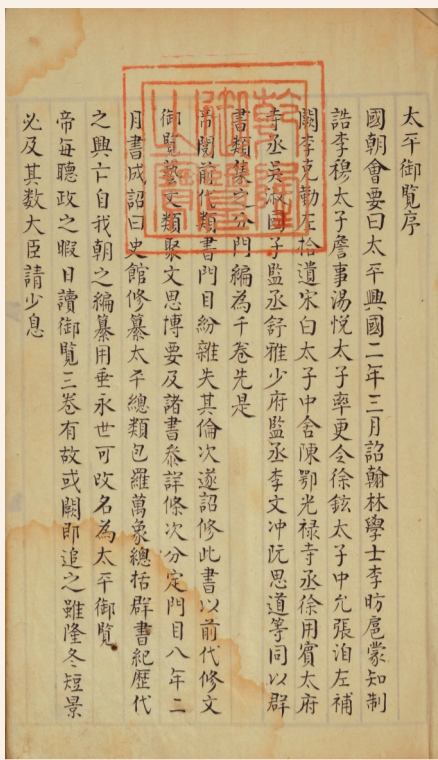 太平御覧序
國朝會要曰太平興國二年三月詔翰林學士李昉扈蒙知制
誥李穆太子詹事湯悅太子率更令徐鉉太子中允張洎左補
闕李克勤左拾遺宋白太子中舍陳鄂光禄寺丞徐用賓太府
寺丞吳淑國子監丞舒雅少府監丞李文冲阮思道等同以群
書類集之分門編為千卷先是
帝閱前代類書門目紛雜失其倫次遂詔修此書以前代修文
御覧藝文類聚文思博要及諸書叅詳條次分定門目八年二
月書成詔曰史館修纂太平總類包羅萬象總括群書紀歷代
之興亡自我朝之編纂用垂永世可改名為太平御覧
帝每聽政之暇日讀御覧三卷有故或闕即追之雖隆冬短景
必及其数大臣請少息
乾隆御覽之寶